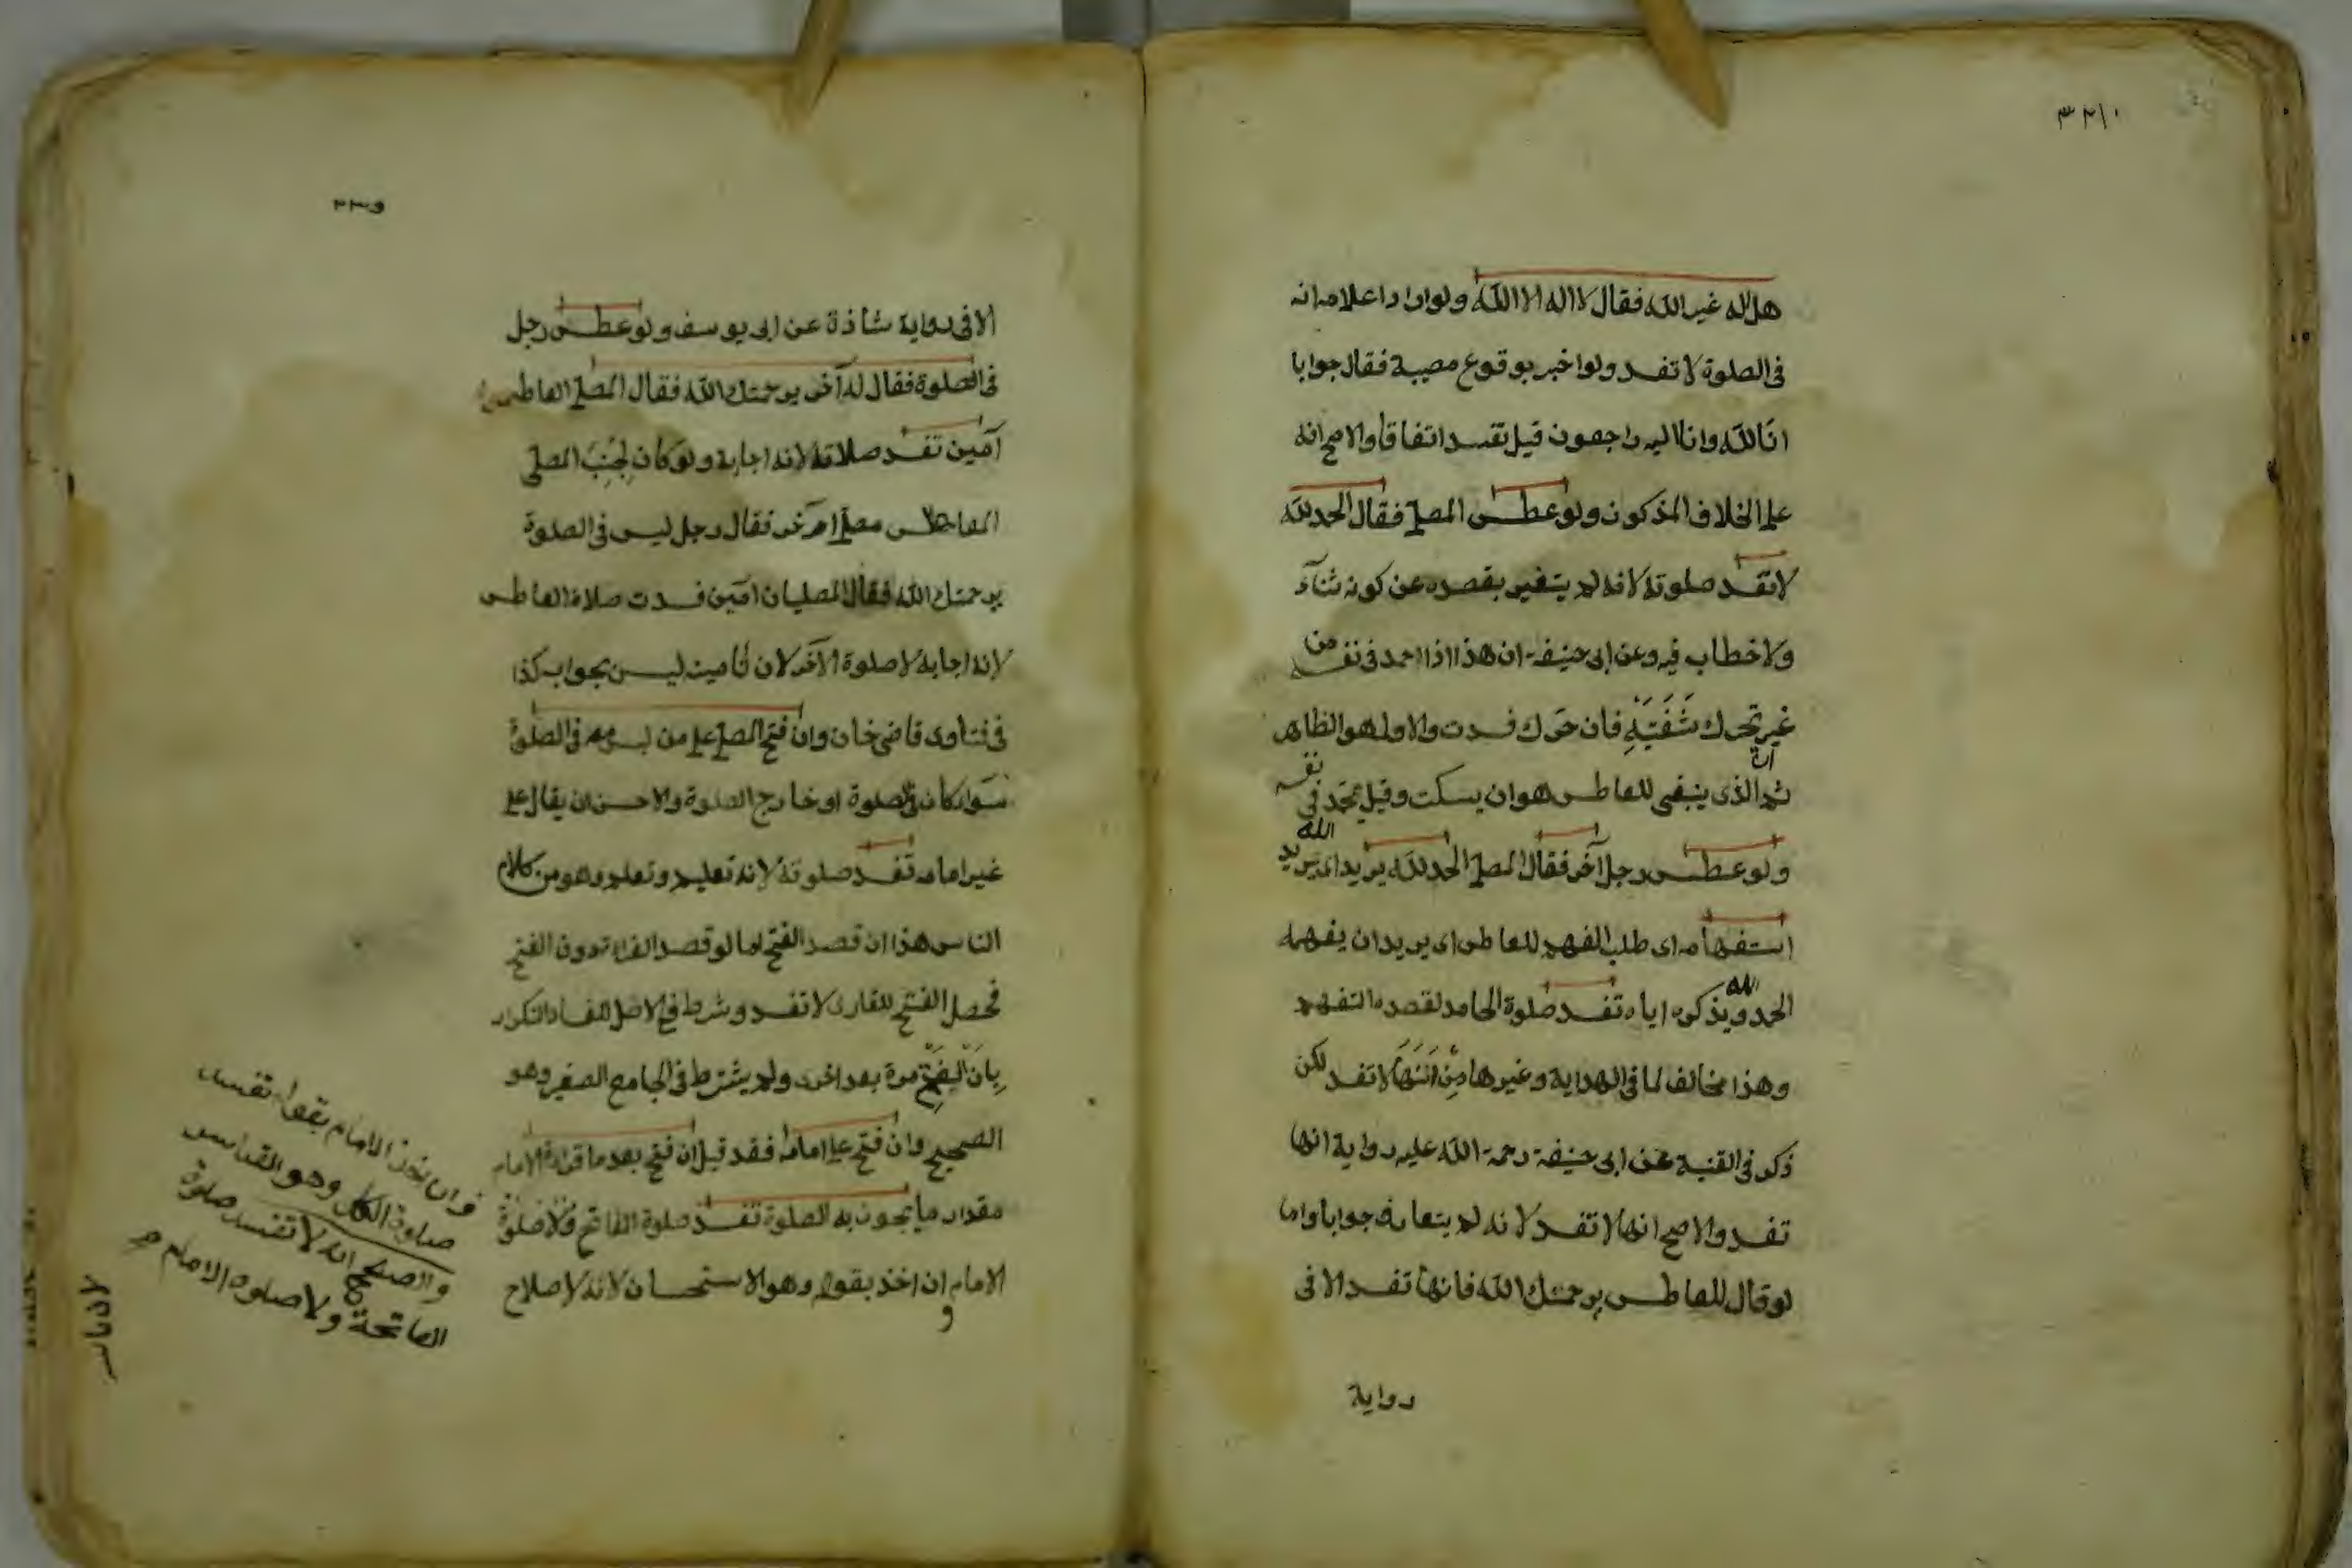 هل اله غير الله فقال لا اله الا الله ولو اراد اعلامه انه
فى الصلوة لا تفسد ولو اخبر بوقوع مصيبة فقال جوابا
انا لله وانا اليه راجعون قيل تفسد اتفاقا والاصح انه
على الخلاف المذكور ولو عطس المصلى فقال الحمد لله
لا تفسد صلوته لانه لم يتغير بقصده عن كونه ثناء
ولا خطاب فيه وعن ابى حنيفة ان هذا اذا حمد فى نفسه من
غير تحرك شفتيه فان حرك فسدت والاول هو الظاهر
ثم ان الذى ينبغى للعاطس هو ان يسكت وقيل يحمد فى نفسه
ولو عطس رجل آخر فقال المصلى الحمد لله يريد اى يريد
استفهامه اى طلب الفهم للعاطس اى يريد ان يفهمه
الحمد لله ويذكره اياه تفسد صلوة الحامد لقصده التفهيم
وهذا مخالف لما فى الهداية وغيرها من انها لا تفسد لكن
ذكر فى القنية عن ابى حنيفة رحمة الله عليه رواية انها
تفسد والاصح انها لا تفسد لانه لم يتعارف جوابا واما
لو قال للعاطس يرحمك الله فانها تفسد الا فى
رواية
الا فى رواية شاذة عن ابى يوسف ولو عطس رجل
فى الصلوة فقال له آخر يرحمك الله فقال المصلى العاطس
آمين تفسد صلاته لانه اجابة ولو كان لجنب المصلى
العاطس مصلى آخر فقال رجل ليس فى الصلوة
يرحمك الله فقال المصليان آمين فسدت صلاة العاطس
لانه اجابة لا صلوة الآخر لان تامينه ليس بجواب كذا
فى فتاوى قاضى خان وان فتح المصلى على من ليس معه فى الصلوة
سواء كان فى الصلوة او خارج الصلوة والاحسن ان يقال على
غير امامه تفسد صلوته لانه تعليم وتعلم وهو من كلام
الناس هذا ان قصد الفتح اما لو قصد القراءة دون الفتح
فحصل الفتح للقارى لا تفسد وشرط فى الاصل للفساد التكرار
بان الفتح مرة بعد اخرى ولم يشترط فى الجامع الصغير وهو
الصحيح وان فتح على امامه فقد قيل ان فتح بعد ما قرا الامام
مقدار ما يجوز به الصلوة تفسد صلوة الفاتح وصلوة
الامام ان اخذ بقوله وهو الاستحسان لانه لاصلاح
فان اخذ الامام بقوله تفسد
صلوة الكل وهو القياس
والصحيح انه لا تفسد صلوة
الفاتحة ولا صلوة الامام